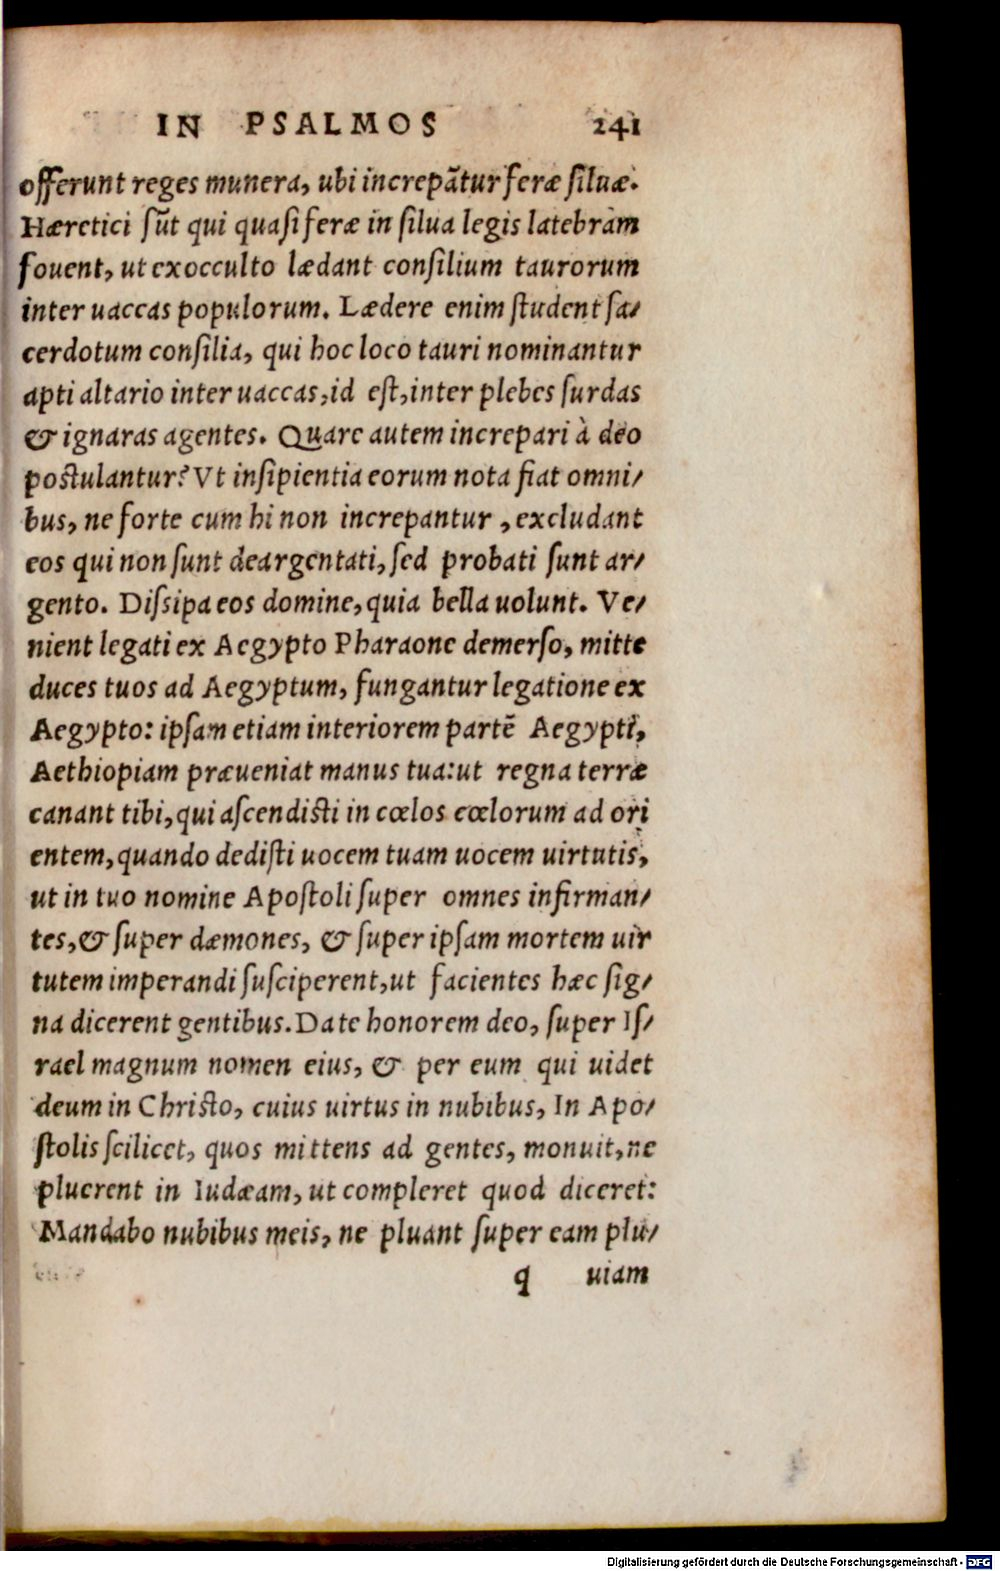 IN PSALMOS 241
offerunt reges munera, ubi increpãtur feræ ſiluæ.
Hæretici ſũt qui quaſi feræ in ſilua legis latebram
fouent, ut ex occulto lædant conſilium taurorum
inter uaccas populorum. Lædere enim ſtudent ſa/
cerdotum conſilia, qui hoc loco tauri nominantur
apti altario inter uaccas, id eſt, inter plebes ſurdas
& ignaras agentes. Quare autem increpari à deo
poſtulantur? Vt inſipientia eorum nota fiat omni/
bus, ne forte cum hi non increpantur, excludant
eos qui non ſunt deargentati, ſed probati ſunt ar/
gento. Diſsipa eos domine, quia bella uolunt. Ve/
nient legati ex Aegypto Pharaone demerſo, mitte
duces tuos ad Aegyptum, fungantur legatione ex
Aegypto: ipſam etiam interiorem partẽ Aegypti,
Aethiopiam præueniat manus tua: ut regna terræ
canant tibi, qui aſcendiſti in cœlos cœlorum ad ori
entem, quando dediſti uocem tuam uocem uirtutis,
ut in tuo nomine Apoſtoli ſuper omnes infirman/
tes, & ſuper dæmones, & ſuper ipſam mortem uir
tutem imperandi ſuſciperent, ut facientes hæc ſig/
na dicerent gentibus. Date honorem deo, ſuper Iſ/
rael magnum nomen eius, & per eum qui uidet
deum in Chriſto, cuius uirtus in nubibus, In Apo/
ſtolis ſcilicet, quos mittens ad gentes, monuit, ne
pluerent in Iudæam, ut compleret quod diceret:
Mandabo nubibus meis, ne pluant ſuper eam plu/
q uiam
Digitalisierung gefördert durch die Deutsche Forschungsgemeinschaft - DFG